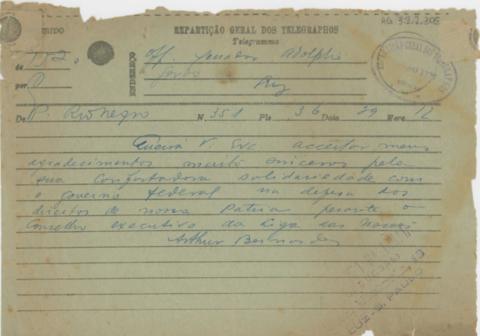 AG 32.7.305
REPARTIÇÃO GERAL DOS TELEGRAPHOS
Telegramma
de 752
por
Adolpho
Rio
De P. Rio Negro N. 351 Pls 36 Data 29 Hora 12
Queira V. Exc acceitar meus
agradecimentos muito sinceros pela
sua confortadora solidariedade com
o governo federal na defesa dos
direitos de nossa Patria perante o
Conselho executivo da Liga das Nações
Arthur Bernardes
S. PAULO